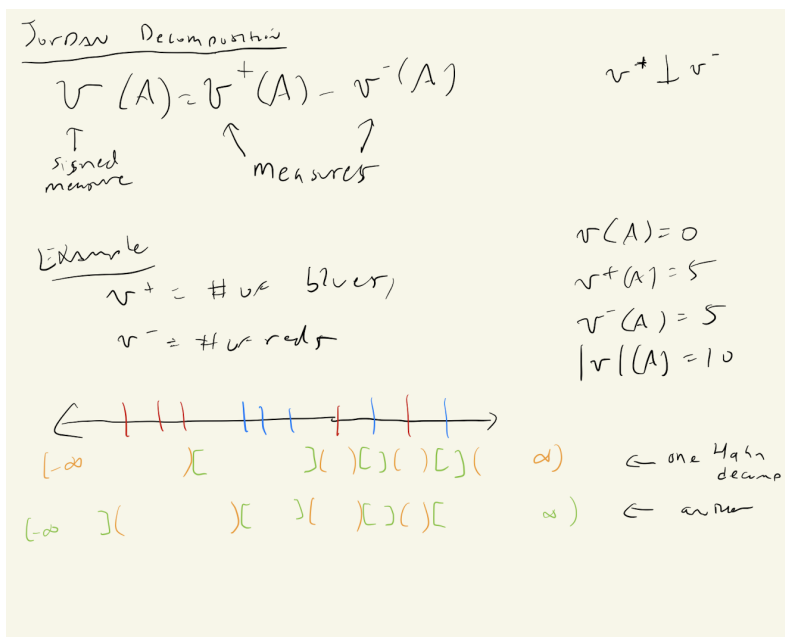 Jordan Decomposition
ν(A) = ν⁺(A) – ν⁻(A)
ν⁺ ⊥ ν⁻
↑ ↑ ↑
signed
measure
measures
Example
ν⁺ = # of blues,
ν⁻ = # of reds
ν(A) = 0
ν⁺(A) = 5
ν⁻(A) = 5
|ν|(A) = 10
(-∞ )[ ]( )[ ]( )[ ]( ∞) ← one Hahn
decomp
(-∞ ]( )[ ]( )[ ]( )[ ∞) ← another